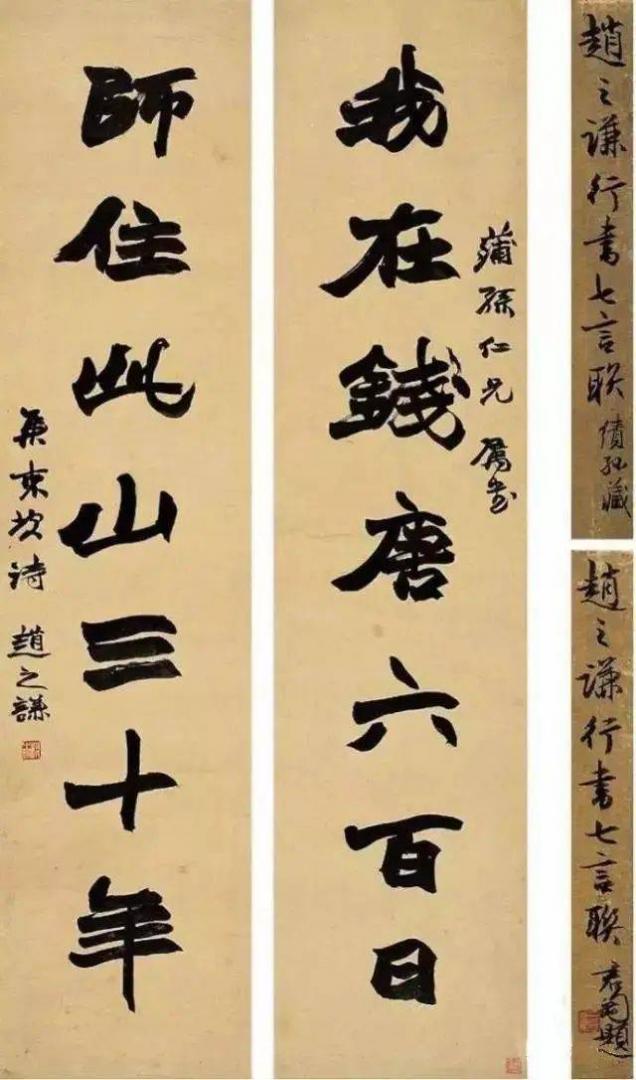 趙之谦行書七言联
藏
趙之谦行書七言联
君匋題
我在錢唐六百日
蒲孫仁兄 属書
師住此山三十年
集東坡詩 趙之謙